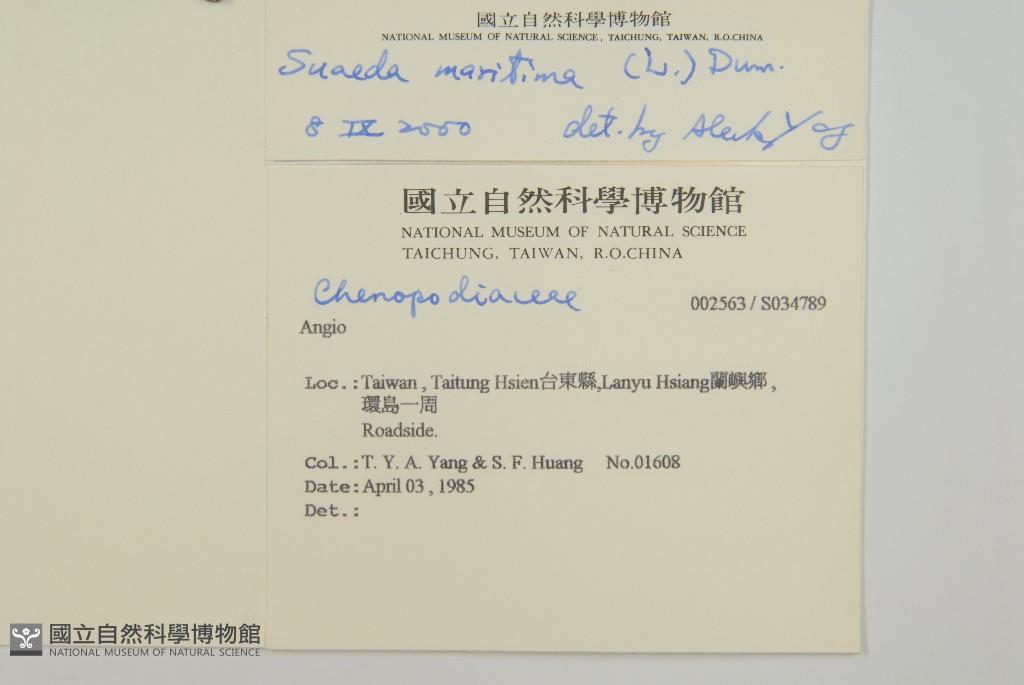 國立自然科學博物館
NATIONAL MUSEUM OF NATURAL SCIENCE, TAICHUNG, TAIWAN, R.O.CHINA
Suaeda maritima (L.) Dum.
8 IX 2000 det. by
國立自然科學博物館
NATIONAL MUSEUM OF NATURAL SCIENCE
TAICHUNG, TAIWAN, R.O.CHINA
Chenopodiaceae 002563 / S034789
Angio
Loc.: Taiwan , Taitung Hsien台東縣,Lanyu Hsiang蘭嶼鄉 ,
環島一周
Roadside.
Col.: T. Y. A. Yang & S. F. Huang No.01608
Date: April 03 , 1985
Det.:
國立自然科學博物館
NATIONAL MUSEUM OF NATURAL SCIENCE